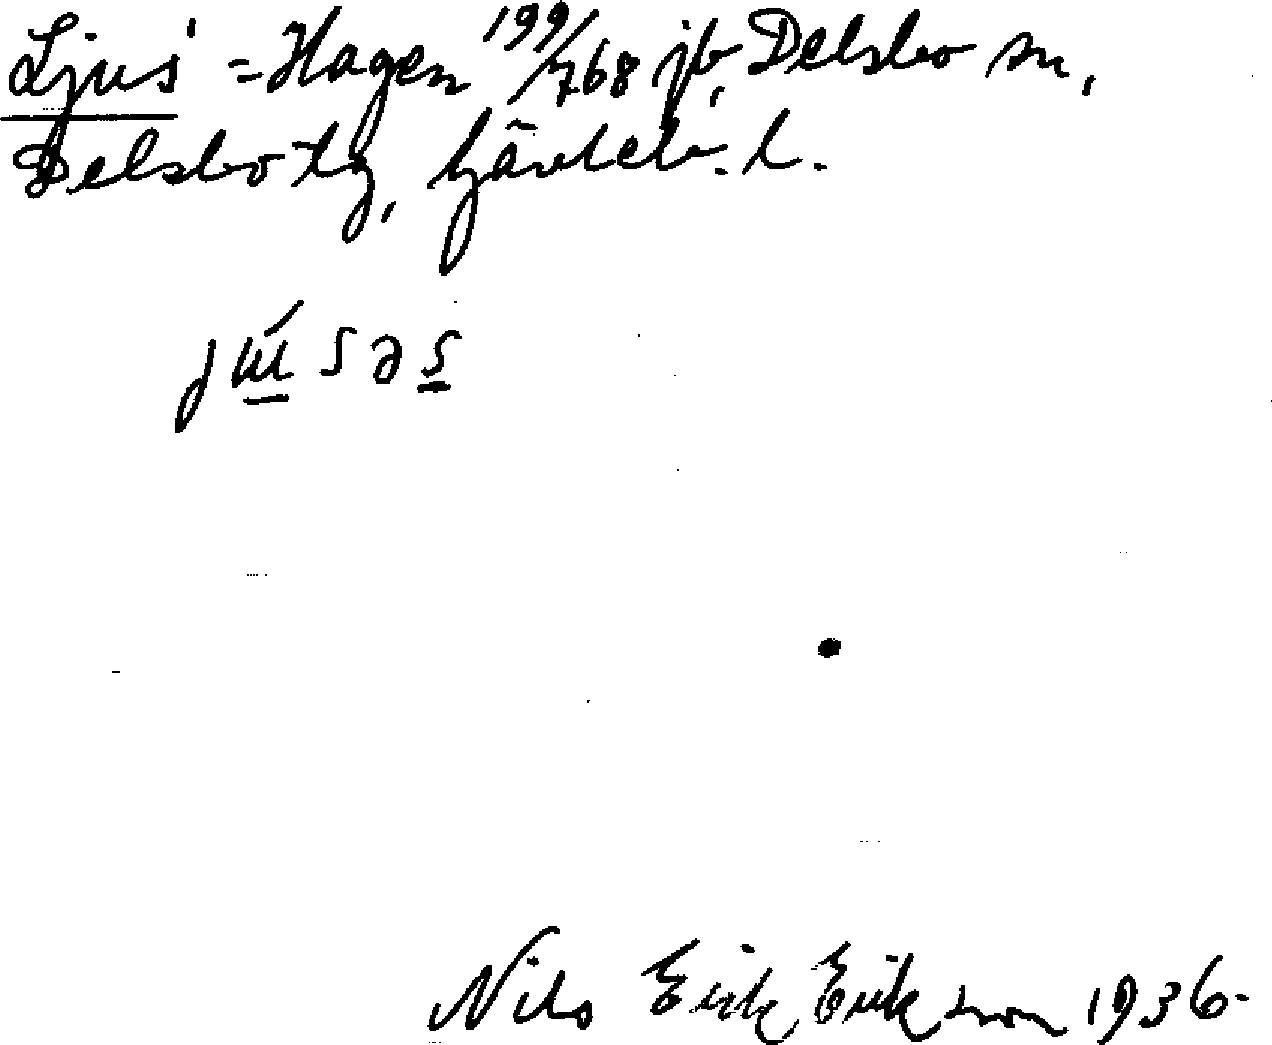 Ljus' = Hagen 199/768 jb, Delsbo sn,
Delsbo tg, Gävleb. l.
Nils Erik Eriksson 1936.